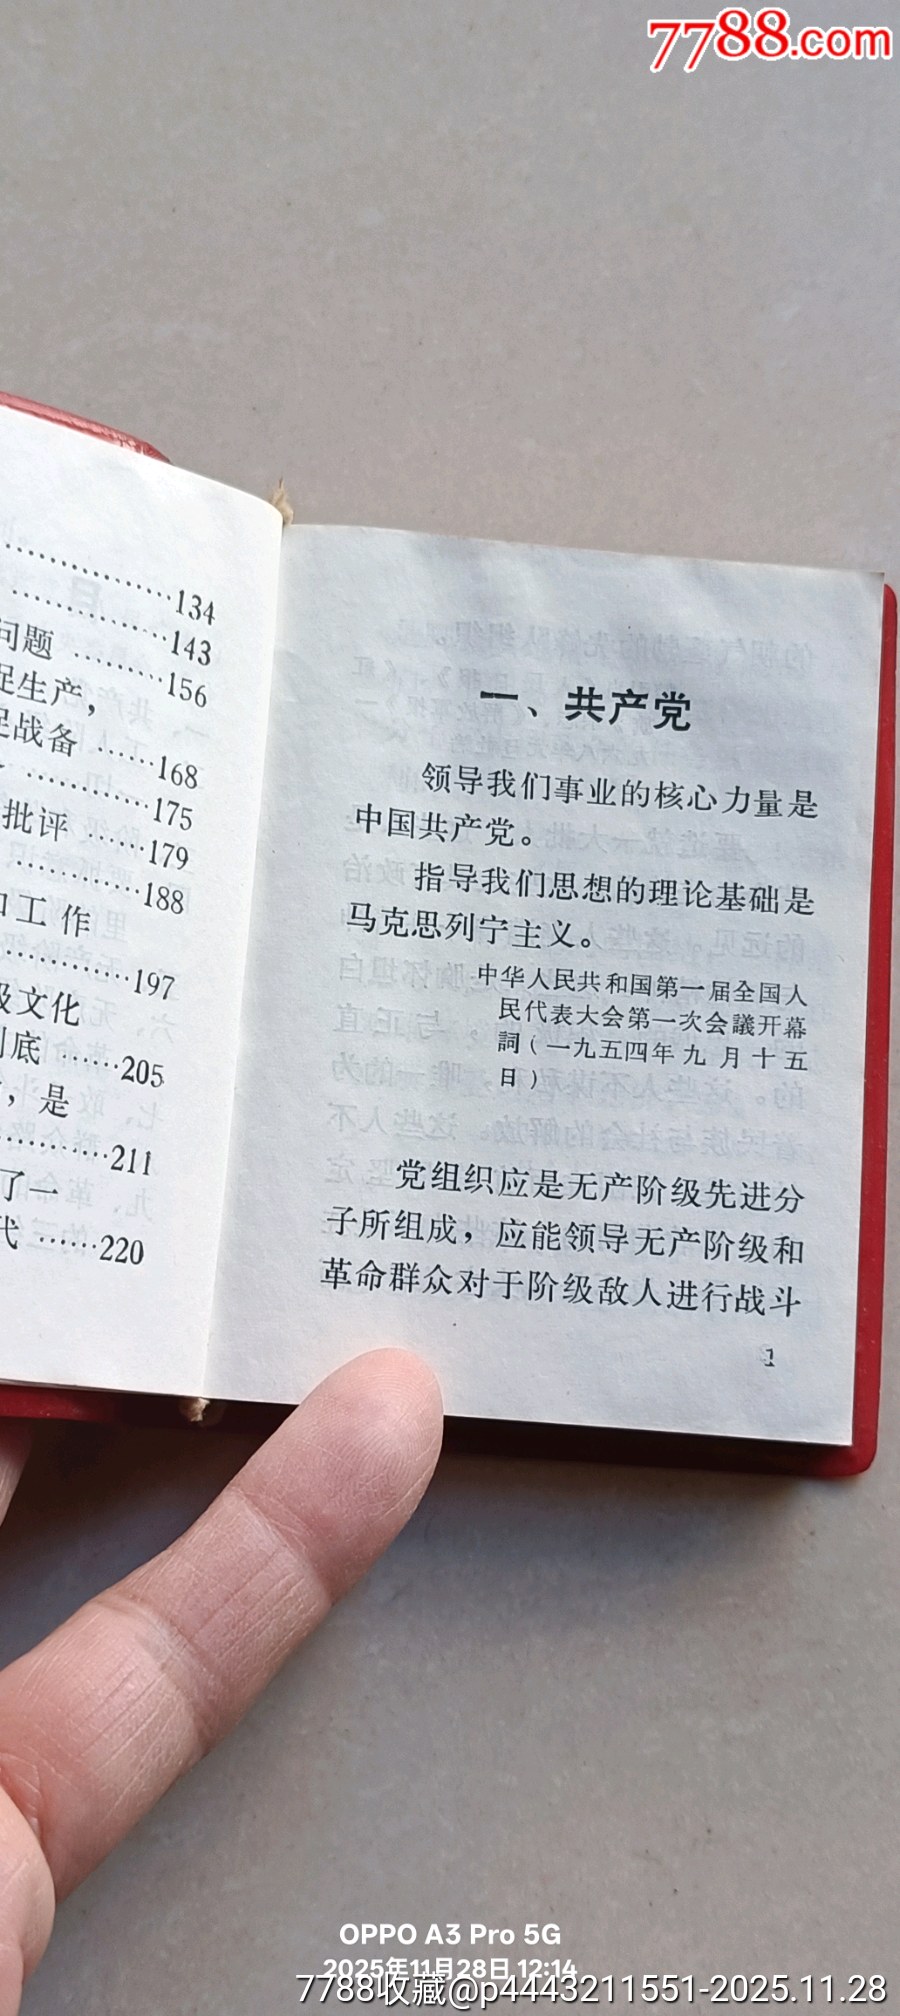 7788.com
……………134
……………143
问题 ………156
促生产，
促战备 ……168
…………175
批评 ……179
……………188
和工作
…………197
级文化
到底 ……205
，是
…………211
了一
代 ……220
一、共产党
领导我们事业的核心力量是
中国共产党。
指导我们思想的理论基础是
马克思列宁主义。
中华人民共和国第一届全国人
民代表大会第一次会議开幕
詞（一九五四年九月十五
日）
党组织应是无产阶级先进分
子所组成，应能领导无产阶级和
革命群众对于阶级敌人进行战斗
1
OPPO A3 Pro 5G
2025年11月28日 12:14
7788收藏@p4443211551-2025.11.28